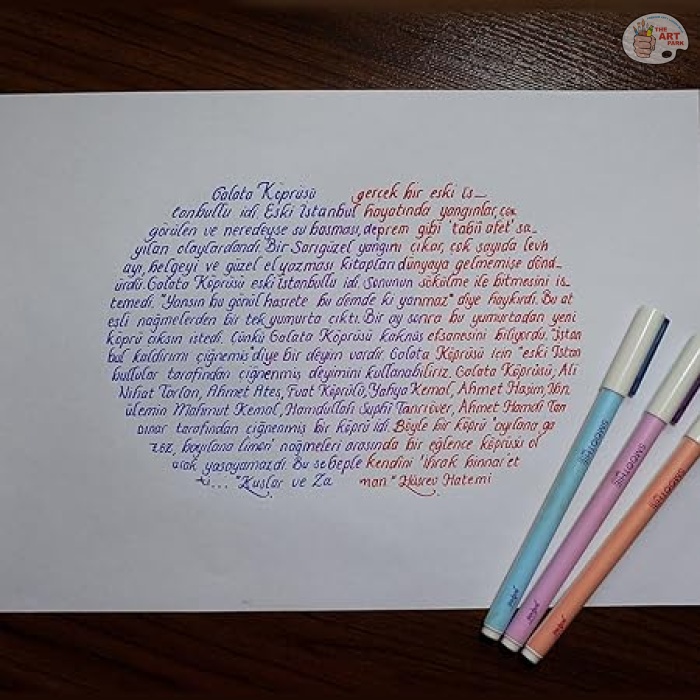 THE
ART
PARK
Galata Köprüsü gerçek bir eski İs-
tanbullu idi Eski İstanbul hayatında yangınlar, çok
görülen ve neredeyse su basması, deprem gibi 'tabiî afet' sa-
yılan olaylardandı. Bir Sarıgüzel yangını çıkar, çok sayıda levh
ayı, belgeyi ve güzel el yazması kitapları dünyaya gelmemişe dönd-
ürdü. Galata Köprüsü eski İstanbullu idi sonunun sökülme ile bitmesini is
temedi. "Yansın bu gönül hasrete bu demde ki yanmaz" diye haykırdı. Bu at
eşli nağmelerden bir tek yumurta çıktı. Bir ay sonra bu yumurtadan yeni
köprü çıksın istedi. Çünkü Galata Köprüsü kaknüs efsanesini biliyordu. "İstan
bul kaldırımı çiğnemiş" diye bir deyim vardır. Galata Köprüsü için "eski İstan
bullular tarafından çiğnenmiş deyimini kullanabiliriz. Galata Köprüsü; Ali
Nihat Tarlan, Ahmet Ateş, Fuat Köprülü, Yahya Kemal, Ahmet Haşim, İbn
ülemin Mahmut Kemal, Hamdullah Suphi Tanrıöver, Ahmet Hamdi Tan
pınar tarafından çiğnenmiş bir köprü idi. Böyle bir köprü "açılana ga
zoz, bayılana limon' nağmeleri arasında bir eğlence köprüsü ol
arak yaşayamazdı. Bu sebeple kendini 'ihrak binnar' et
ti... "Kuşlar ve Za man" Hüsrev Hatemi
SMOOTHIE
SMOOTHIE